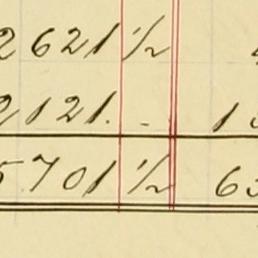 2621 1/2
2121. -
5701 1/2 63